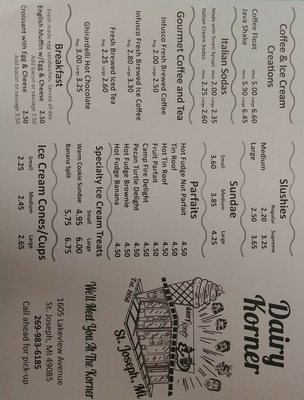 Coffee & Ice Cream
Creations
Coffee Float
Reg. 5.00 Large 6.60
Java Shake
Med. 5.90 Large 6.45
Italian Sodas
Made with Torani Syrups
Med. 2.00 Large 2.35
Italian Cream Sodas
Med. 2.25 Large 2.60
Gourmet Coffee and Tea
Infusco Fresh Brewed Coffee
Infusco Fresh Brewed Ice Coffee
Reg. 2.80 Large 3.30
Fresh Brewed Iced Tea
Reg. 2.25 Large 2.60
Ghirardelli Hot Chocolate
Reg. 3.00 Large 3.25
Breakfast
Fresh made egg sandwiches. Served all day.
English Muffin w/Egg & Cheese 2.50
Add bacon or sausage 3.50
Croissant with Egg & Cheese 2.50
Add bacon or sausage 3.50
Slushies
Regular Supreme
Medium 2.20 3.25
Large 2.50 3.65
Sundae
Small Medium Large
3.60 3.85 4.25
Parfaits
Hot Fudge Nut Parfait 4.50
Tin Roof 4.50
Hot Tin Roof 4.50
Fruit Parfait 4.50
Camp Fire Delight 4.50
Pecan Turtle Delight 4.50
Hot Fudge Brownie 4.50
Hot Fudge Banana 4.50
Specialty Ice Cream Treats
Small Large
Warm Cookie Sundae 4.95 6.00
Banana Split 5.75 6.75
Ice Cream Cones/Cups
Small Medium Large
2.25 2.45 2.65
Dairy
Korner
dairy
korner
St. Joseph, Mi.
We'll Meet You At The Korner
1605 Lakeview Avenue
St. Joseph, MI 49085
269-983-6185
Call ahead for pick-up